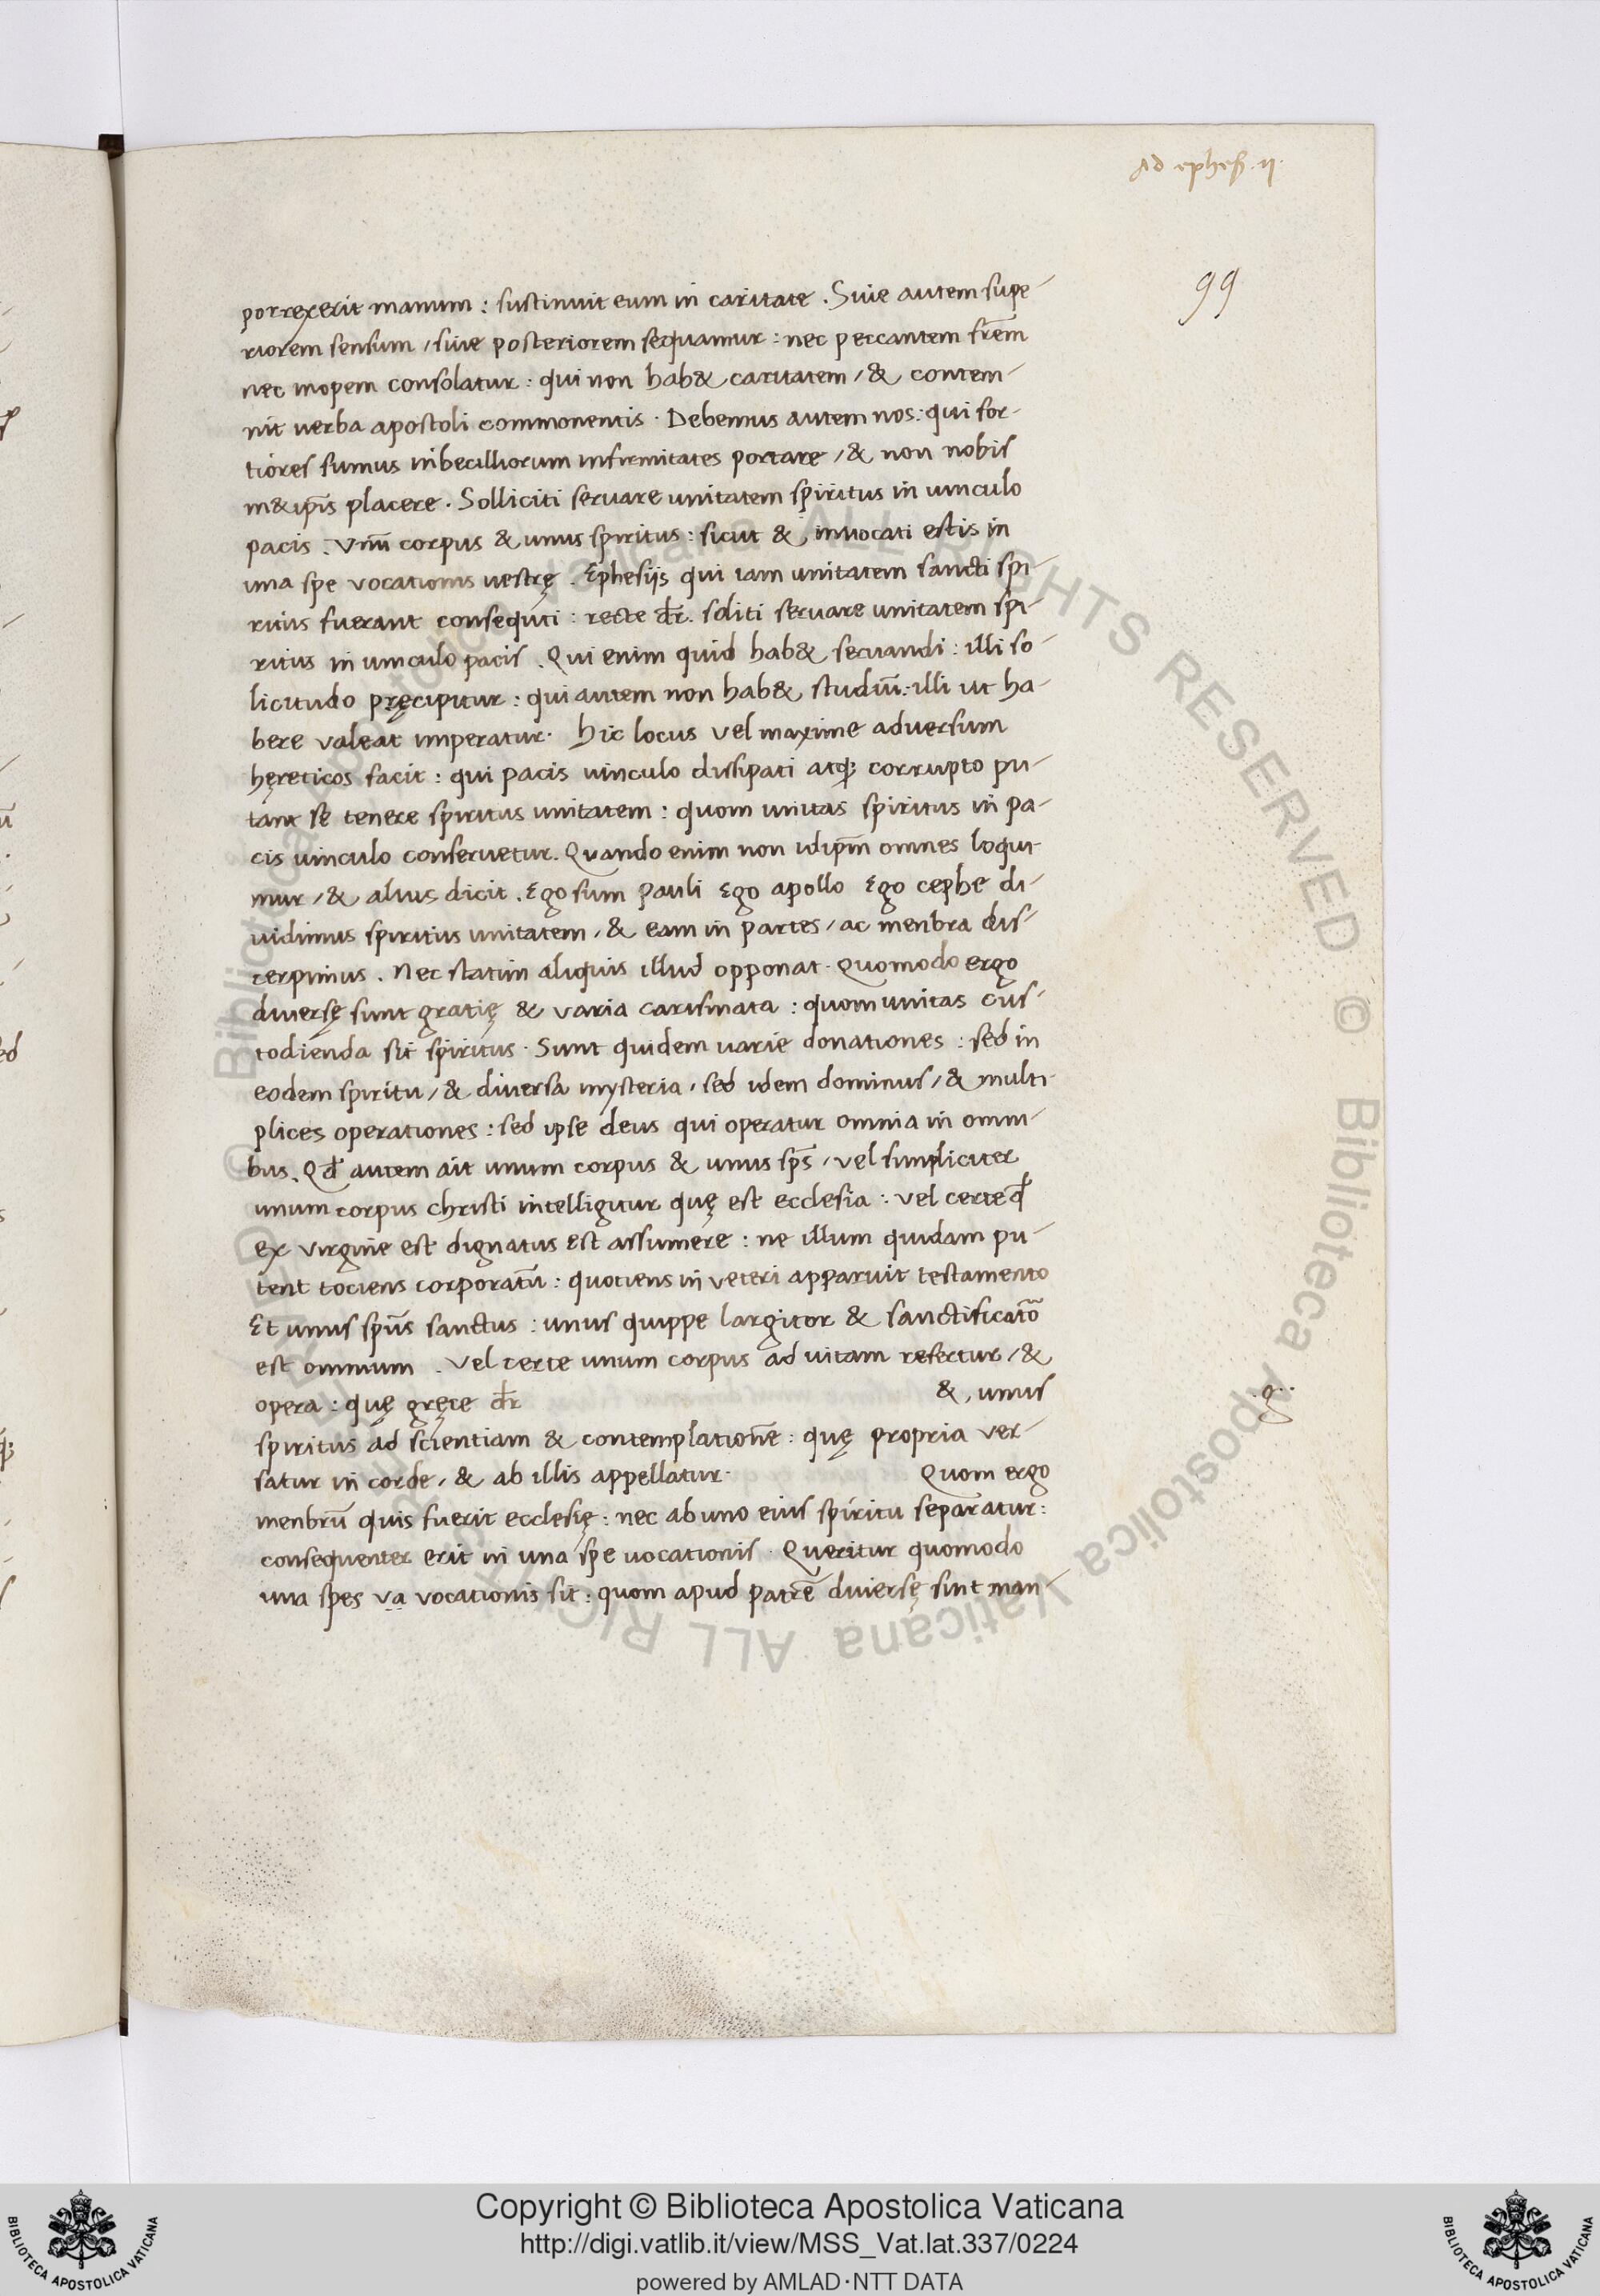 Ad ephes̄ .ii.
99
porrexerit manum : sustinuit eum in caritate . Siue autem supe-
riorem sensum / siue posteriorem sequamur : nec peccantem frēm
nec inopem consolatur : qui non hab& caritatem / & contem-
nit uerba apostoli commonentis . Debemus autem nos : qui for-
tiores sumus inbecilliorum infirmitates portare / & non nobis
m&ip̄is placere . Solliciti seruare unitatem spiritus in uinculo
pacis . Vnū corpus & unus spiritus : sicut & , inuocati estis in
una spe vocationis uestrę . Ephesijs qui iam unitatem sancti spi-
ritus fuerant consequti : recte dr̄ . soliti seruare unitatem spi-
ritus in uinculo pacis . Qui enim quid hab& seruandi : illi so-
licitudo pręcipitur : qui autem non hab& studiū : illi ut ha-
bere valeat imperatur . hic locus vel maxime aduersum
hęreticos facit : qui pacis uinculo dissipati atq; corrupto pu-
tant se tenere spiritus unitatem : quom unitas spiritus in pa-
cis uinculo conseruetur . Quando enim non idip̄m omnes loqui-
mur / & alius dicit . Ego sum pauli Ego apollo Ego cephe di-
uidimus spiritus unitatem / & eam in partes / ac menbra dis-
cerpimus . Nec statim aliquis illud opponat . Quomodo ergo
diuersę sunt gratię & varia carismata : quom unitas cus-
todienda sit spiritus . Sunt quidem uarie donationes : sed in
eodem spiritu / & diuersa mysteria / sed idem dominus / & multi-
plices operationes : sed ipse deus qui operatur omnia in omni-
bus . Qd̄ autem ait unum corpus & unus sp̄s / vel simpliciter
unum corpus christi intelligitur quę est ecclesia : vel certe qd̄
ex virgine est dignatus est assumere : ne illum quidam pu-
tent tociens corporatū : quotiens in veteri apparuit testamento
Et unus spūs sanctus : unus quippe largitor & sanctificatō
est omnium . vel certe unum corpus ad uitam refertur / &
opera : quę gręce dr̄ & , unus
.g.
spiritus ad scientiam & contemplationē : quę propria ver-
satur in corde / & ab illis appellatur . Quom ergo
menbrū quis fuerit ecclesię : nec ab uno eius spiritu separatur :
consequenter erit in una spe uocationis . Queritur quomodo
una spes va vocationis sit : quom apud patrē diuersę sint man-
Copyright © Biblioteca Apostolica Vaticana
http://digi.vatlib.it/view/MSS_Vat.lat.337/0224
powered by AMLAD·NTT DATA